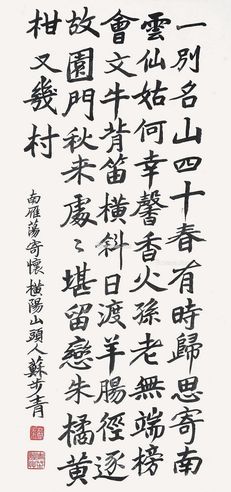 一別名山四十春有時歸思寄南
雲仙姑何幸馨香火孫老無端榜
會文牛背笛橫斜日渡羊腸徑逐
故園門秋来處〻堪留戀朱橘黃
柑又幾村
南雁蕩寄懷 橫陽山頭人蘇步青